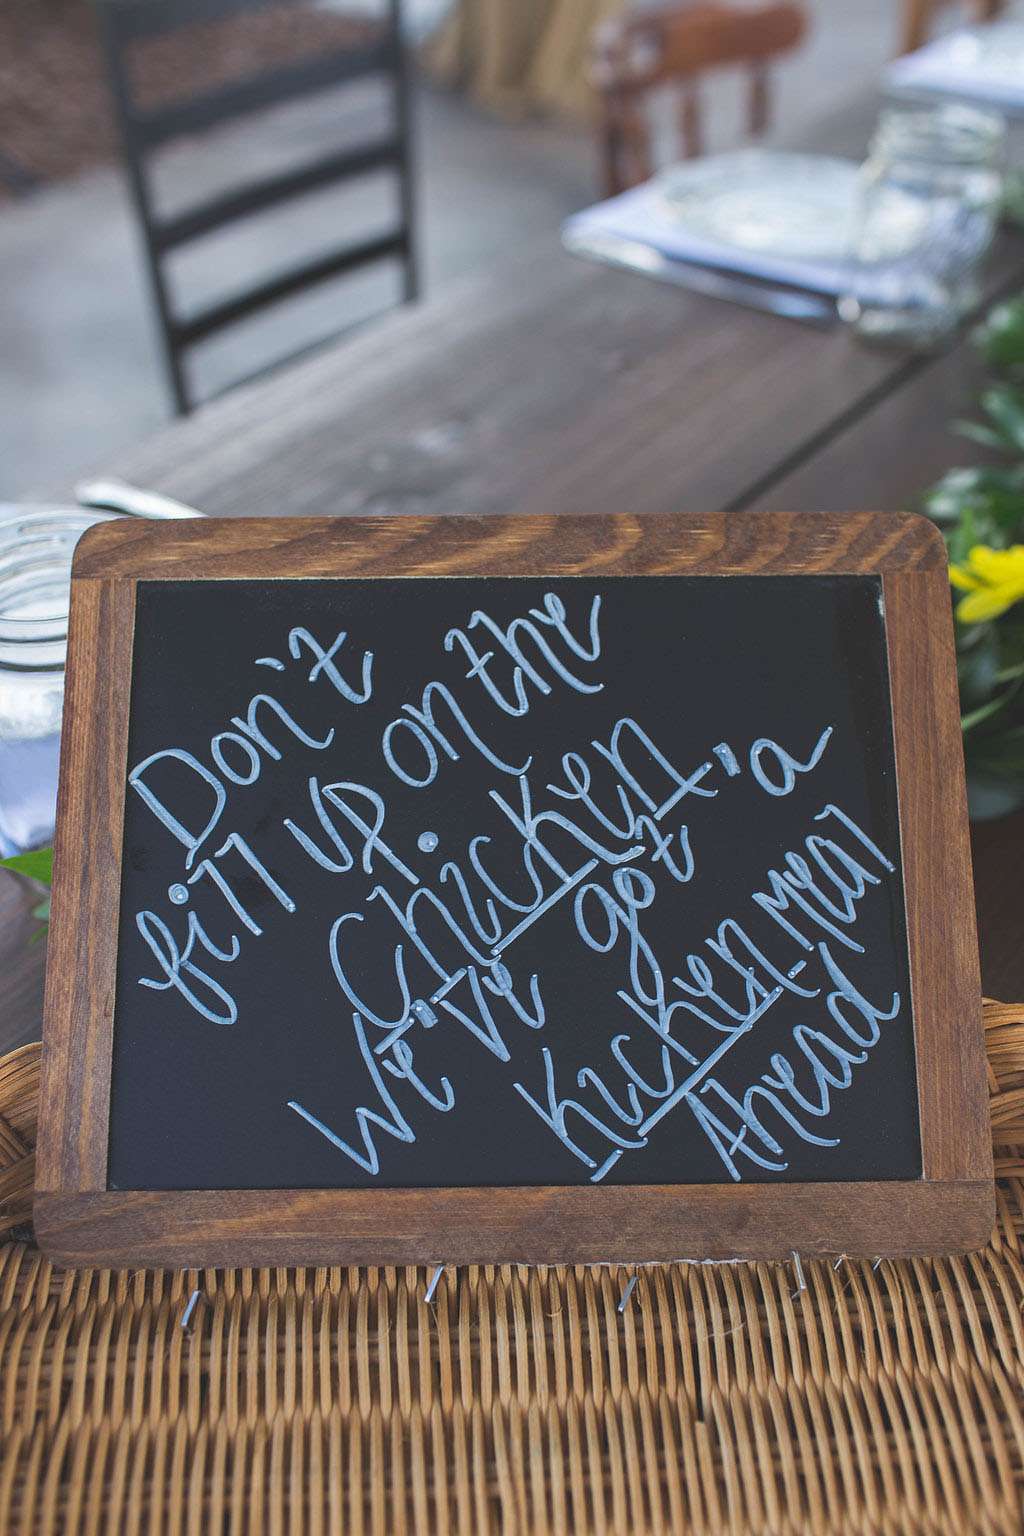 Don't
fill up on the
Chicken,
We've got a
Kicken meal
Ahead